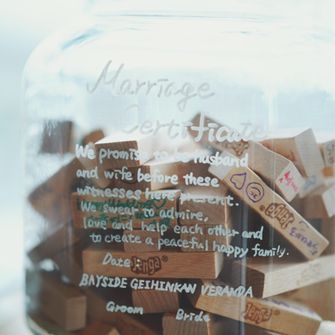 Marriage
Certificate
We promise to be husband
and wife before these
witnesses here present.
We swear to admire,
love and help each other and
to create a peaceful happy family.
Date
Jenga
BAYSIDE GEIHINKAN VERANDA
Groom Bride
Jenga
Jenga
Jenga